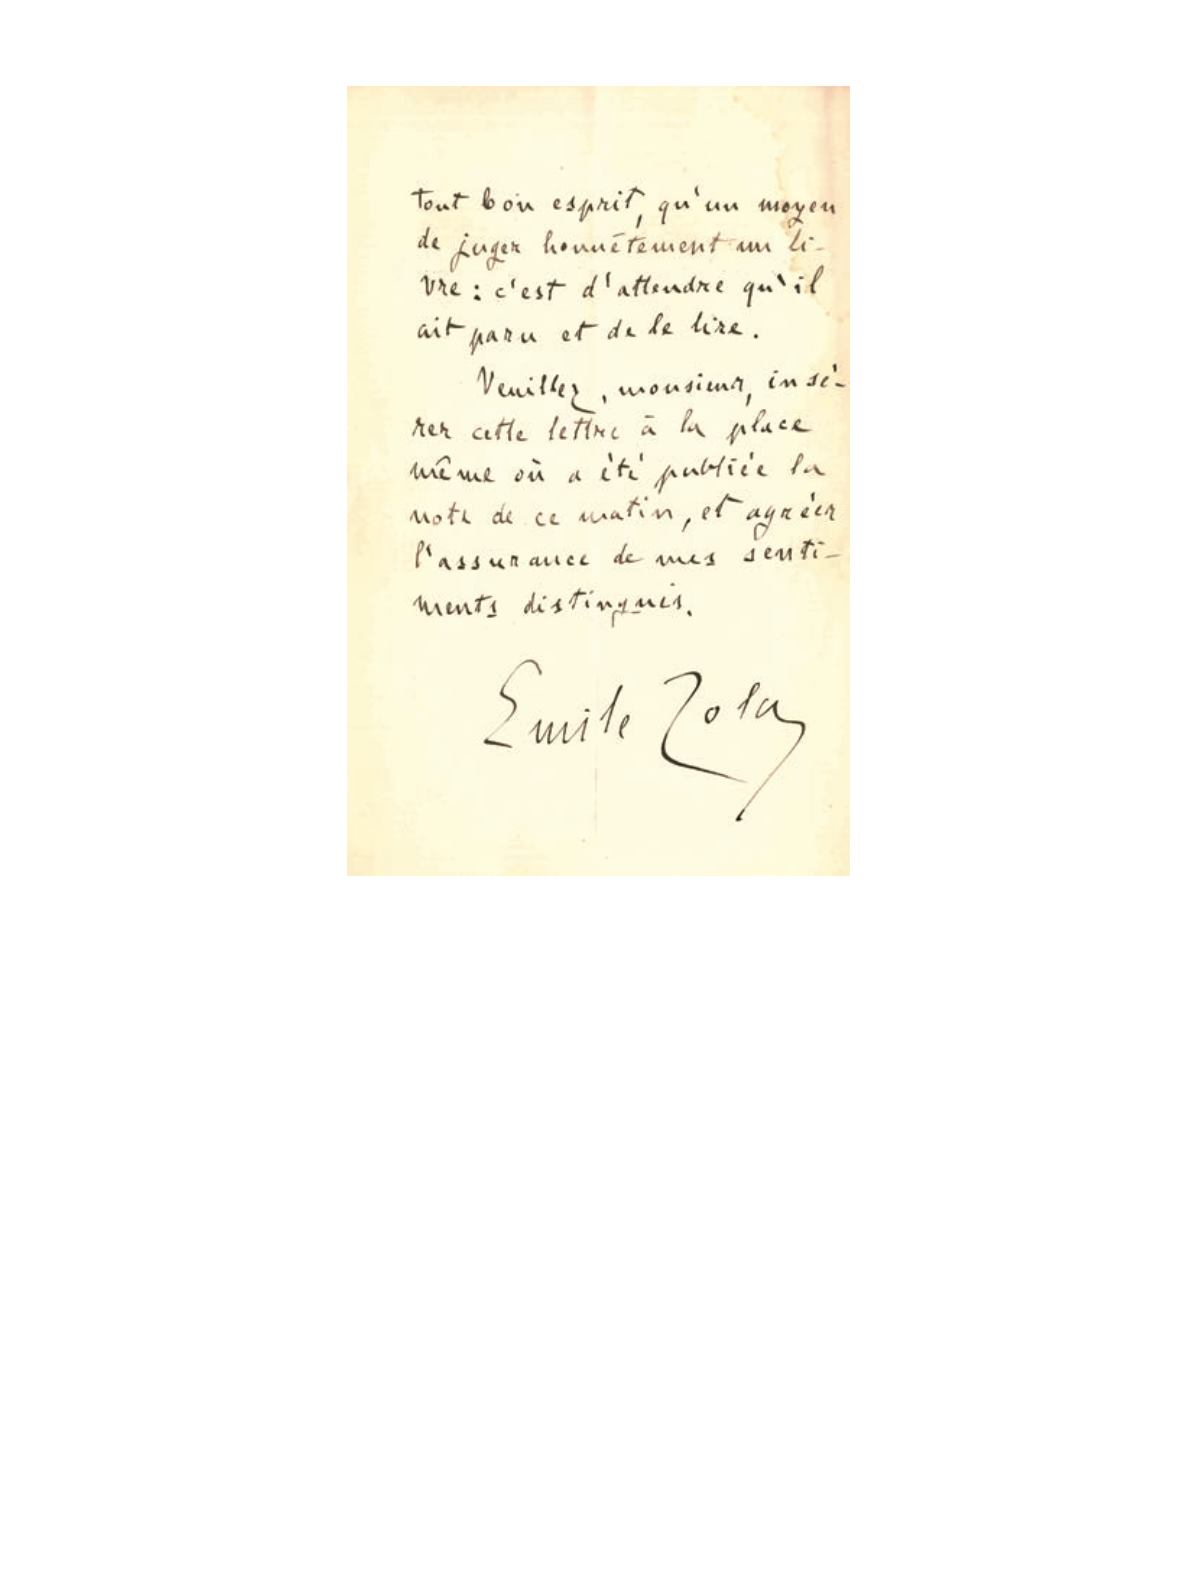 tout bon esprit, qu'un moyen
de juger honnêtement un li-
vre : c'est d'attendre qu'il
ait paru et de le lire.
Veuillez, monsieur, insé-
rer cette lettre à la place
même où a été publiée la
note de ce matin, et agréer
l'assurance de mes senti-
ments distingués.
Emile Zola